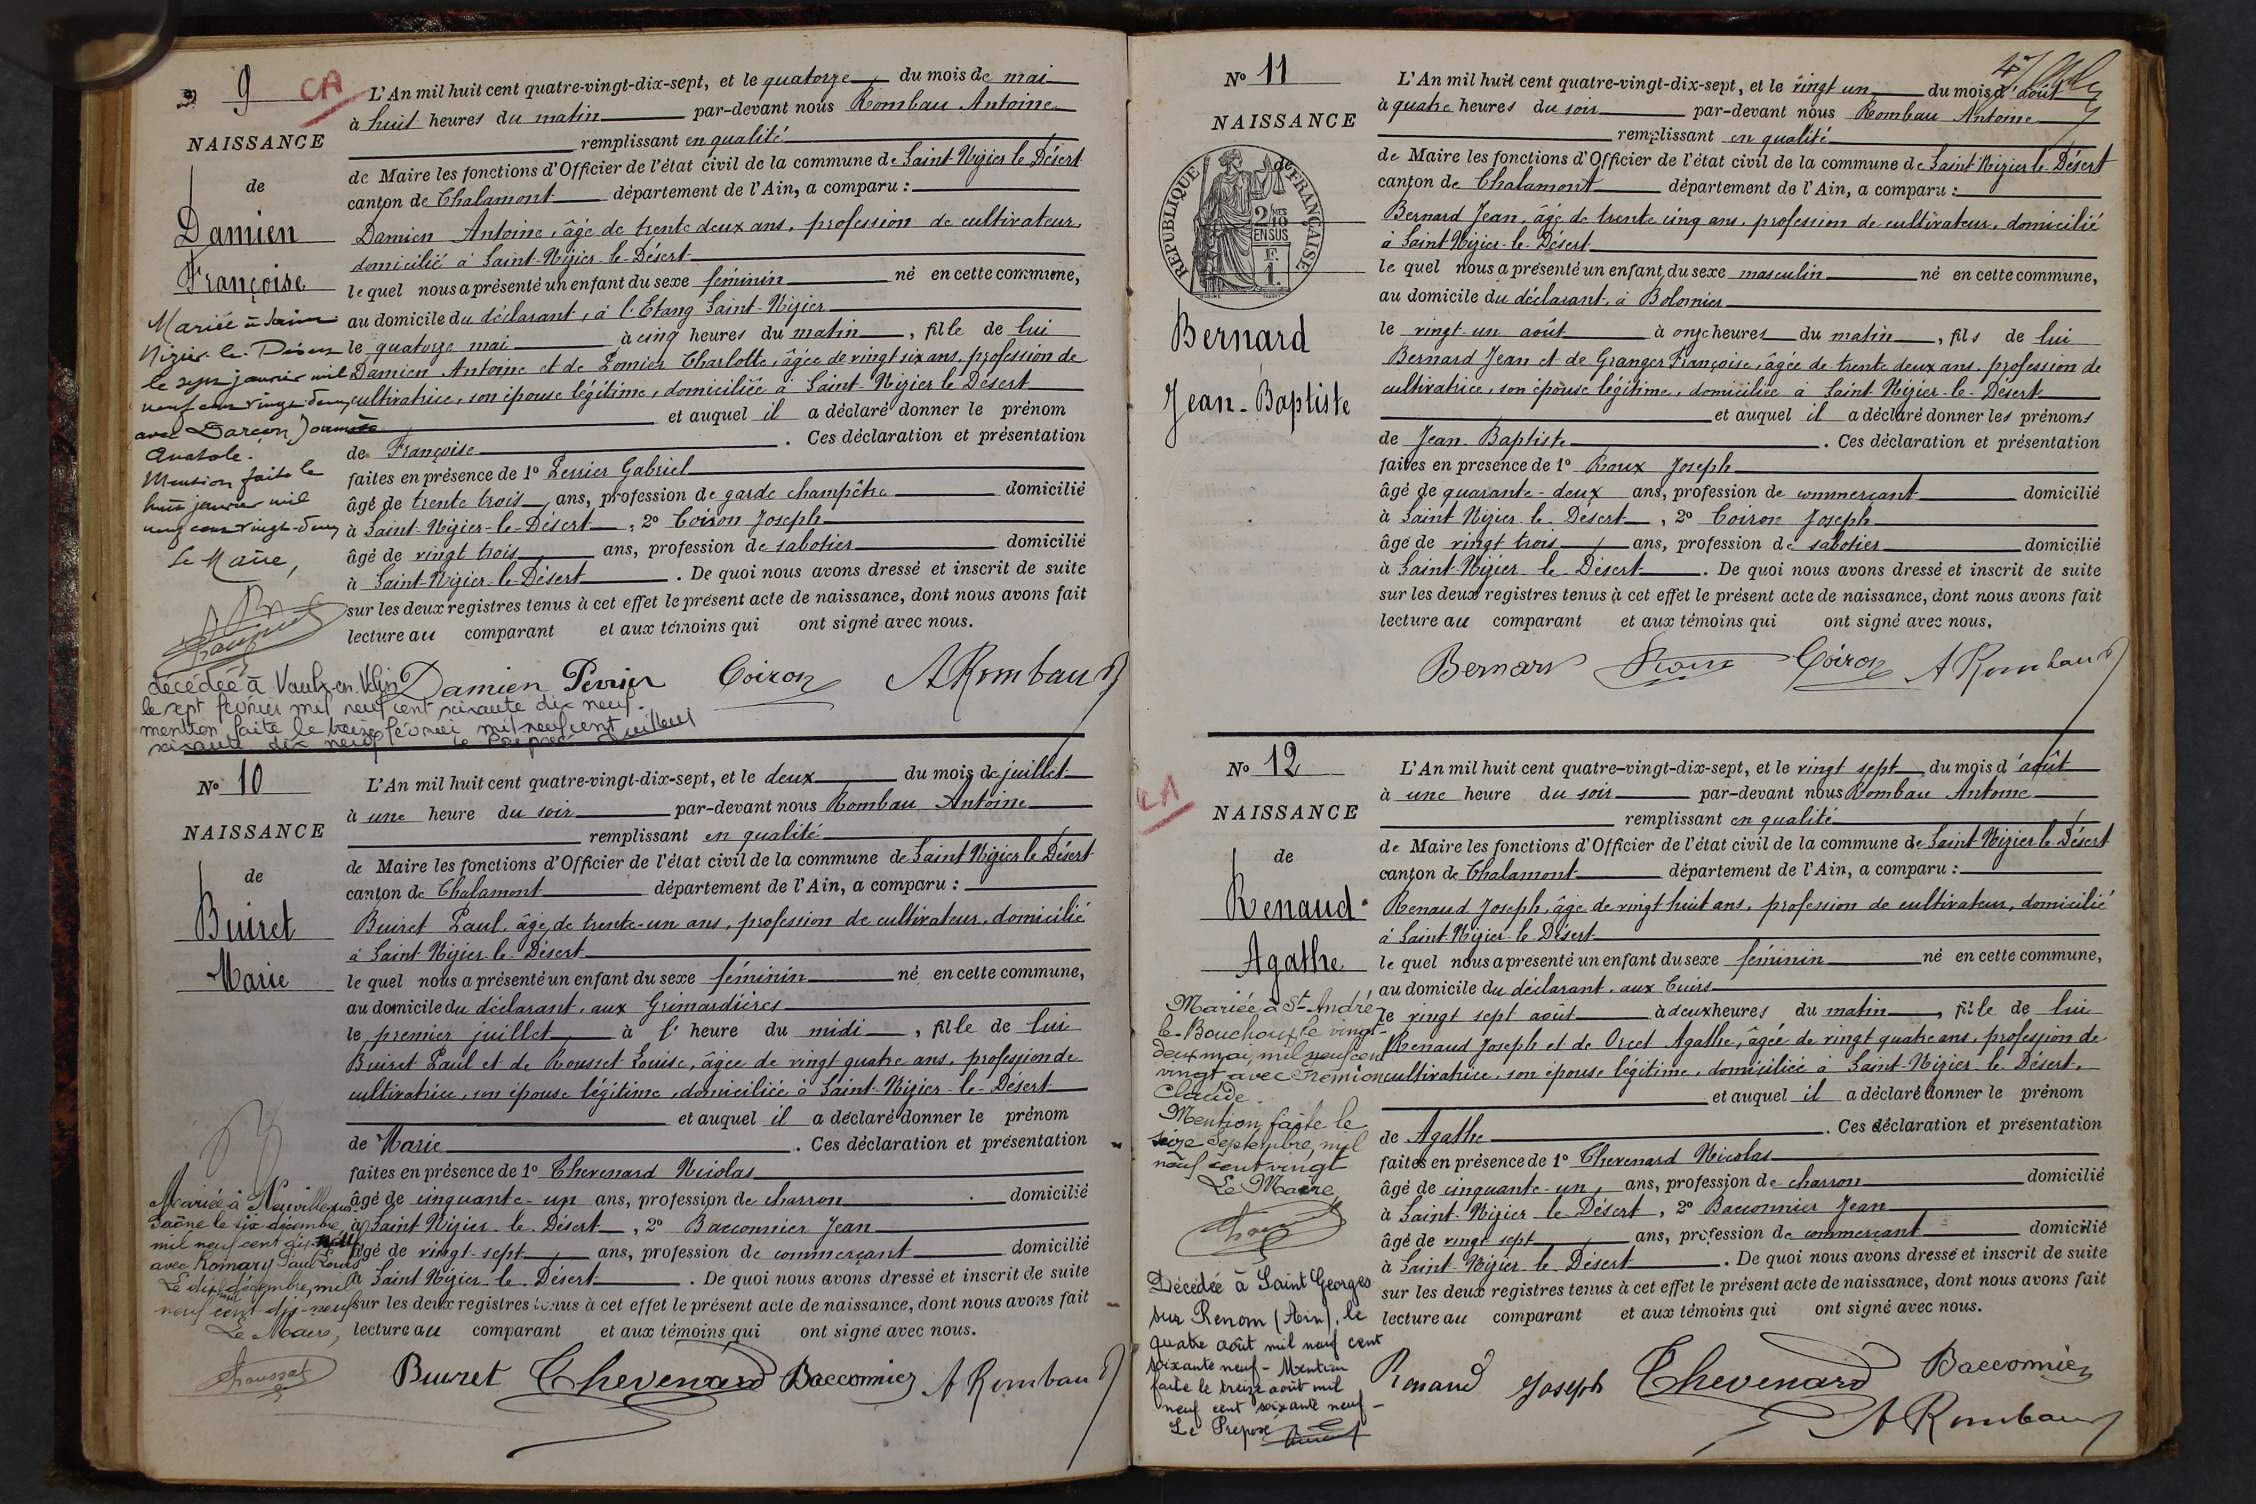 9
CA
NAISSANCE
de
Damien
Françoise
L'An mil huit cent quatre-vingt-dix-sept, et le quatorze du mois de mai
à huit heures du matin par-devant nous Rombau Antoine
remplissant en qualité
de Maire les fonctions d'Officier de l'état civil de la commune de Saint Nizier le Désert
canton de Chalamont département de l'Ain, a comparu :
Damien Antoine, âgé de trente deux ans, profession de cultivateur,
domicilié à Saint-Nizier-le-Désert
lequel nous a présenté un enfant du sexe féminin né en cette commune,
au domicile du déclarant, à l'Etang Saint-Nizier
le quatorze mai à cinq heures du matin, fille de lui
Damien Antoine et de Lomier Charlotte, âgée de vingt six ans, profession de
cultivatrice, son épouse légitime, domiciliée à Saint-Nizier le Désert
et auquel il a déclaré donner le prénom
de Françoise. Ces déclaration et présentation
faites en présence de 1º Perrier Gabriel
âgé de trente trois ans, profession de garde champêtre domicilié
à Saint-Nizier-le-Désert, 2º Coiron Joseph
âgé de vingt trois ans, profession de sabotier domicilié
à Saint-Nizier-le-Désert. De quoi nous avons dressé et inscrit de suite
sur les deux registres tenus à cet effet le présent acte de naissance, dont nous avons fait
lecture au comparant et aux témoins qui ont signé avec nous.
Mariée à Saint
Nizier-le-Désert
le sept janvier mil
neuf cent vingt-deux
avec Darçon
Anatole.
Mention faite le
huit janvier mil
neuf cent vingt-deux
Le Maire,
Damien Perrier Coiron A Rombau
décédée à Vaulx-en-Velin
le sept février mil neuf cent soixante dix neuf.
mention faite le treize février mil neuf cent
soixante dix neuf le Préposé
Nº 10
NAISSANCE
de
Buiret
Marie
L'An mil huit cent quatre-vingt-dix-sept, et le deux du mois de juillet
à une heure du soir par-devant nous Rombau Antoine
remplissant en qualité
de Maire les fonctions d'Officier de l'état civil de la commune de Saint Nizier le Désert
canton de Chalamont département de l'Ain, a comparu :
Buiret Paul, âgé de trente-un ans, profession de cultivateur, domicilié
à Saint Nizier-le-Désert
lequel nous a présenté un enfant du sexe féminin né en cette commune,
au domicile du déclarant, aux Grimardières
le premier juillet à l'heure du midi, fille de lui
Buiret Paul et de Rousset Louise, âgée de vingt quatre ans, profession de
cultivatrice, son épouse légitime, domiciliée à Saint-Nizier-le-Désert
et auquel il a déclaré donner le prénom
de Marie. Ces déclaration et présentation
faites en présence de 1º Thevenard Nicolas
âgé de cinquante-un ans, profession de charron domicilié
à Saint Nizier-le-Désert, 2º Bacconnier Jean
âgé de vingt-sept ans, profession de commerçant domicilié
à Saint Nizier-le-Désert. De quoi nous avons dressé et inscrit de suite
sur les deux registres tenus à cet effet le présent acte de naissance, dont nous avons fait
lecture au comparant et aux témoins qui ont signé avec nous.
Mariée à Neuville-sur-
Saône le six décembre
mil neuf cent dix-neuf
avec Romary Paul Louis
Le dix décembre, mil
neuf cent dix-neuf
Le Maire,
Buiret Thevenard Bacconnier A Rombau
Nº 11
NAISSANCE
RÉPUBLIQUE FRANÇAISE
2/10 EN SUS
Bernard
Jean-Baptiste
L'An mil huit cent quatre-vingt-dix-sept, et le vingt un du mois d'août
à quatre heures du soir par-devant nous Rombau Antoine
remplissant en qualité
de Maire les fonctions d'Officier de l'état civil de la commune de Saint Nizier-le-Désert
canton de Chalamont département de l'Ain, a comparu :
Bernard Jean, âgé de trente cinq ans, profession de cultivateur, domicilié
à Saint Nizier-le-Désert
lequel nous a présenté un enfant du sexe masculin né en cette commune,
au domicile du déclarant, à Bolomier
le vingt-un août à onze heures du matin, fils de lui
Bernard Jean et de Granger Françoise, âgée de trente deux ans, profession de
cultivatrice, son épouse légitime, domiciliée à Saint Nizier-le-Désert
et auquel il a déclaré donner les prénoms
de Jean-Baptiste. Ces déclaration et présentation
faites en présence de 1º Roux Joseph
âgé de quarante-deux ans, profession de commerçant domicilié
à Saint Nizier-le-Désert, 2º Coiron Joseph
âgé de vingt trois ans, profession de sabotier domicilié
à Saint-Nizier-le-Désert. De quoi nous avons dressé et inscrit de suite
sur les deux registres tenus à cet effet le présent acte de naissance, dont nous avons fait
lecture au comparant et aux témoins qui ont signé avec nous.
Bernard Roux Coiron A Rombau
CA
Nº 12
NAISSANCE
de
Renaud
Agathe
L'An mil huit cent quatre-vingt-dix-sept, et le vingt sept du mois d'août
à une heure du soir par-devant nous Rombau Antoine
remplissant en qualité
de Maire les fonctions d'Officier de l'état civil de la commune de Saint-Nizier-le-Désert
canton de Chalamont département de l'Ain, a comparu :
Renaud Joseph, âgé de vingt huit ans, profession de cultivateur, domicilié
à Saint-Nizier-le-Désert
lequel nous a présenté un enfant du sexe féminin né en cette commune,
au domicile du déclarant, aux Cuirs
le vingt sept août à deux heures du matin, fille de lui
Renaud Joseph et de Orcet Agathe, âgée de vingt quatre ans, profession de
cultivatrice, son épouse légitime, domiciliée à Saint-Nizier-le-Désert,
et auquel il a déclaré donner le prénom
de Agathe. Ces déclaration et présentation
faites en présence de 1º Thevenard Nicolas
âgé de cinquante-un ans, profession de charron domicilié
à Saint Nizier-le-Désert, 2º Bacconnier Jean
âgé de vingt sept ans, profession de commerçant domicilié
à Saint-Nizier-le-Désert. De quoi nous avons dressé et inscrit de suite
sur les deux registres tenus à cet effet le présent acte de naissance, dont nous avons fait
lecture au comparant et aux témoins qui ont signé avec nous.
Mariée à St-André-
le-Bouchoux le vingt-
deux mai, mil neuf cent
vingt avec Fremion
Claude.
Mention faite le
seize Septembre, mil
neuf cent vingt
Le Maire,
Décédée à Saint Georges
sur Renom (Ain), le
quatre août mil neuf cent
soixante neuf - Mention
faite le treize août mil
neuf cent soixante neuf -
Le Préposé
Renaud Joseph Thevenard Bacconnier
A Rombau